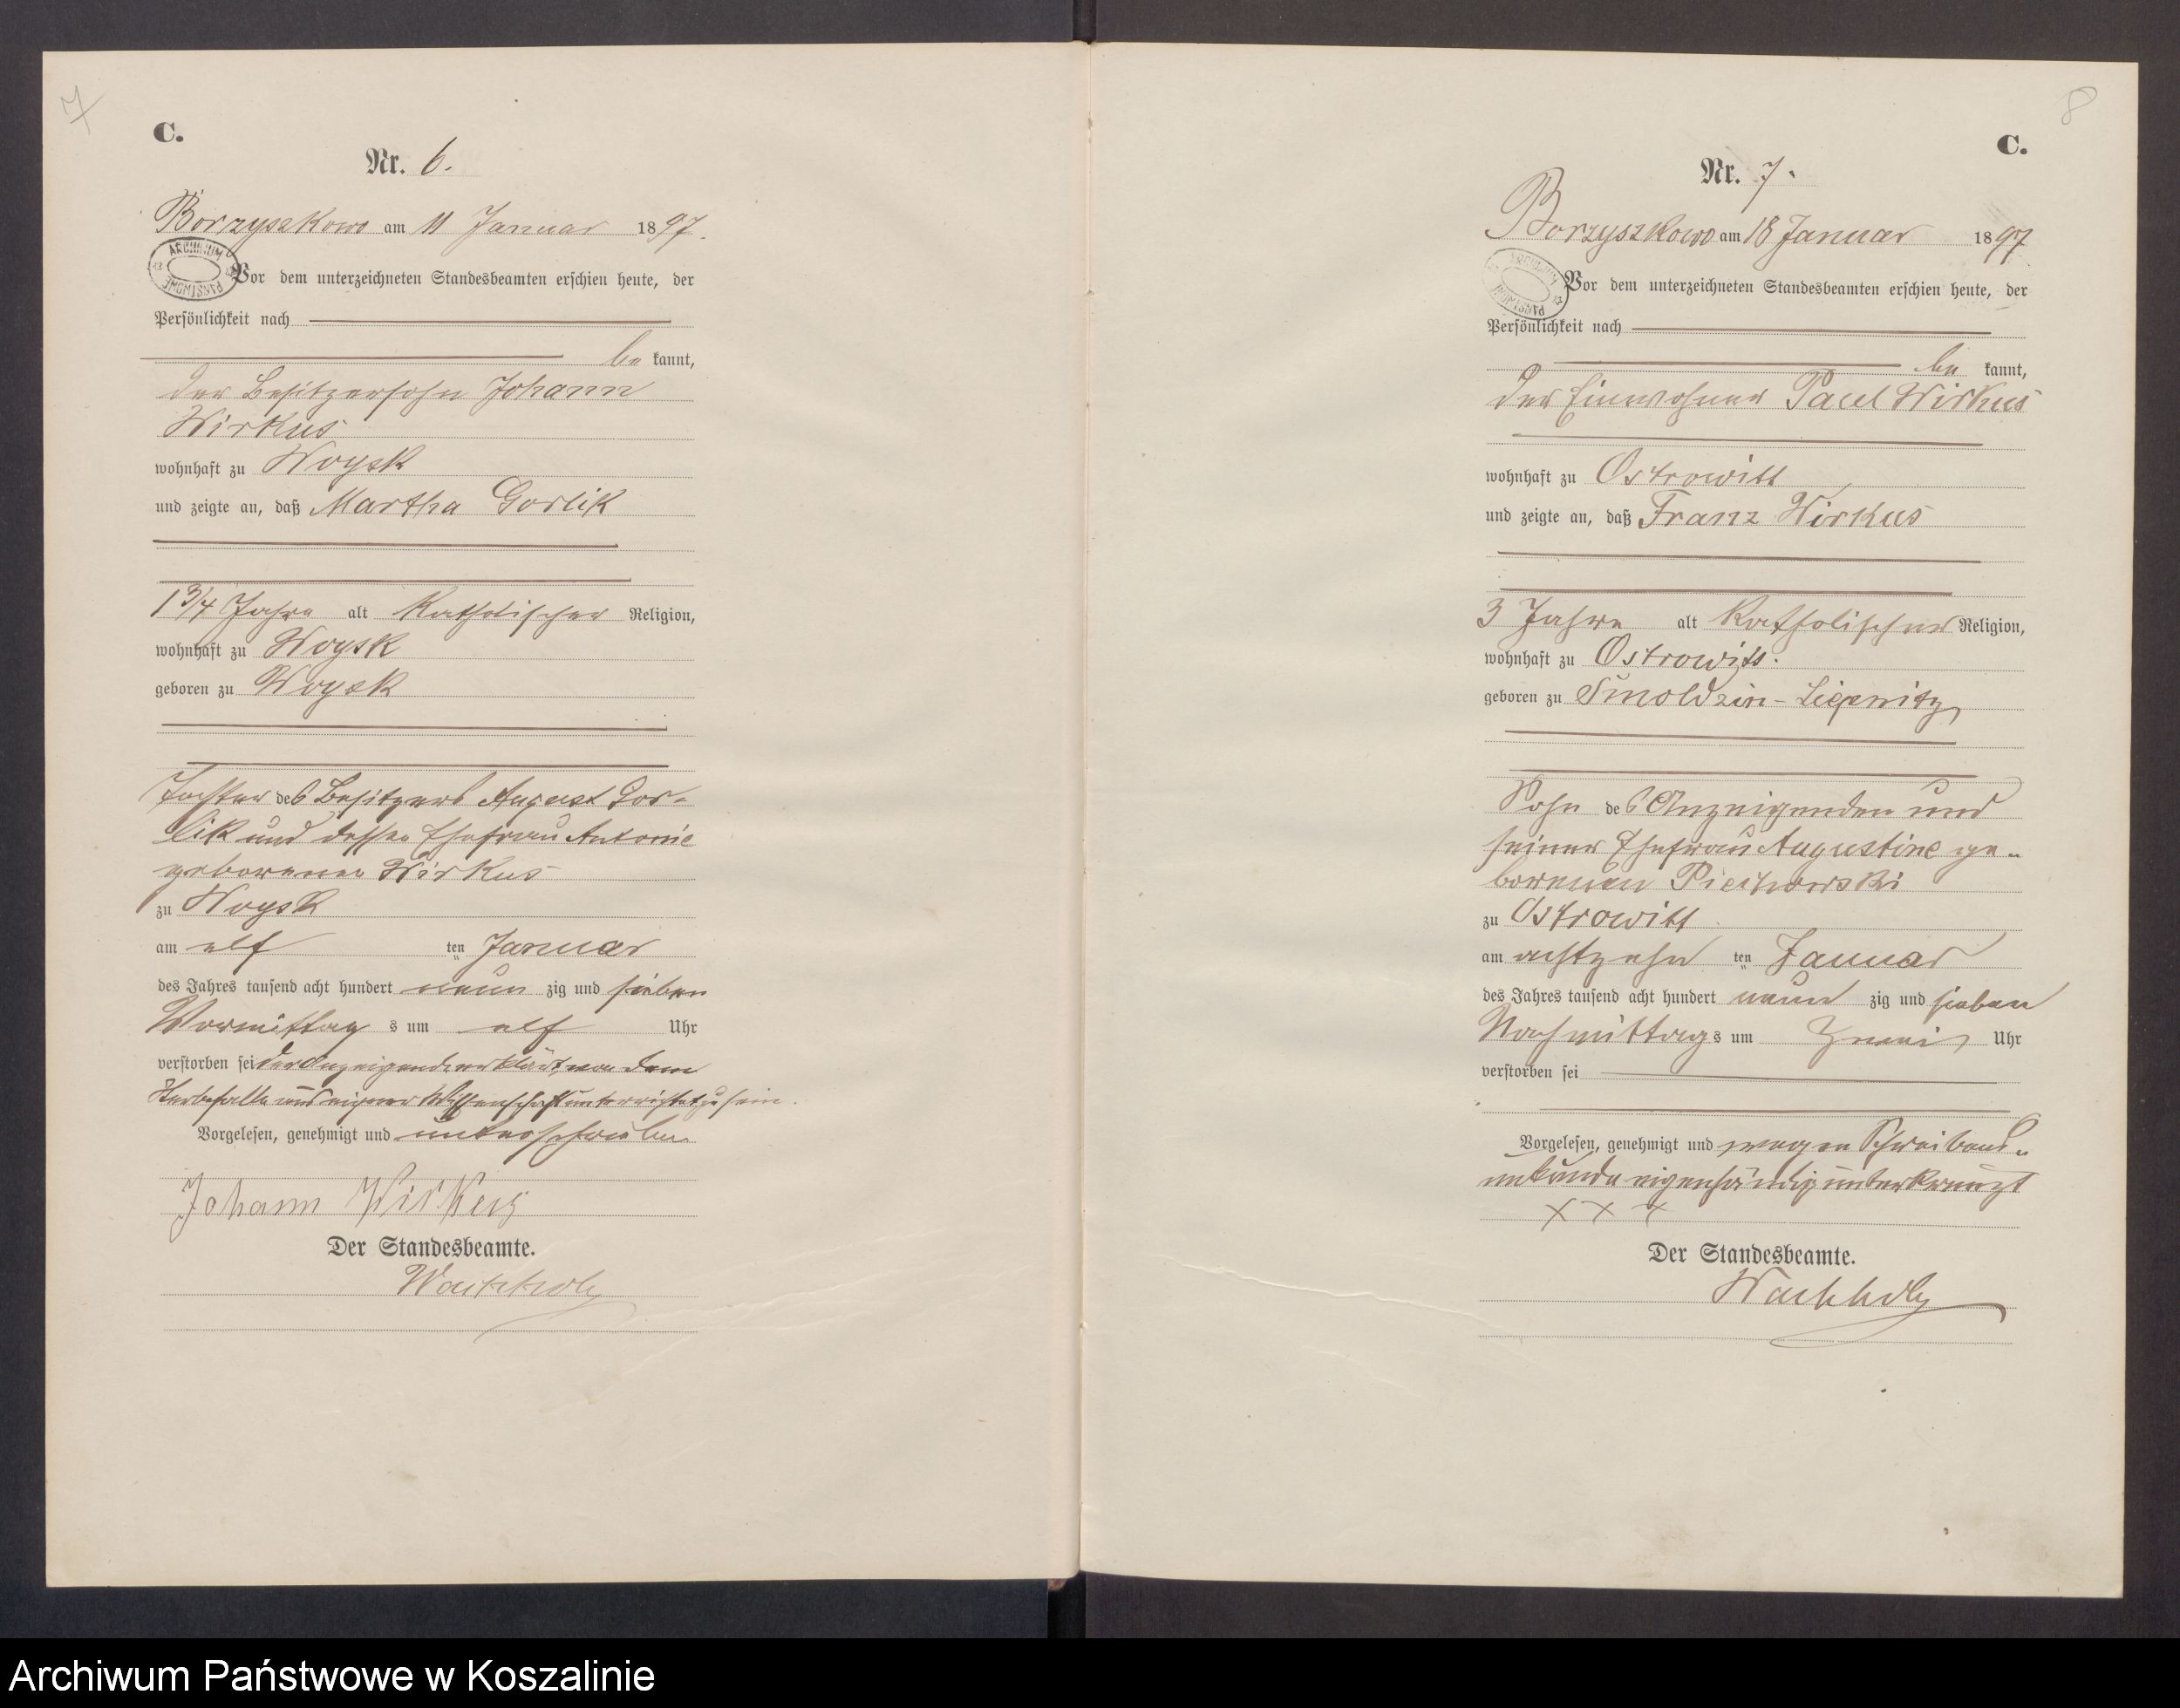 7
C.
Nr. 6.
Borzyszkowo am 11 Januar 1897.
ARCHIWUM PAŃSTWOWE
Vor dem unterzeichneten Standesbeamten erschien heute, der
Persönlichkeit nach
be kannt,
der Besitzersohn Johann
Wirkus
wohnhaft zu Woysk
und zeigte an, daß Martha Gorlik
1 3/4 Jahre alt katholischer Religion,
wohnhaft zu Woysk
geboren zu Woysk
Tochter des Besitzers August Gor-
lik und dessen Ehefrau Antonie
geborenen Wirkus
zu Woysk
am elf ten Januar
des Jahres tausend acht hundert neun zig und sieben
Vormittag s um elf Uhr
verstorben sei der Anzeigende erklärt, von dem
Sterbefalle aus eigener Wissenschaft unterrichtet zu sein.
Vorgelesen, genehmigt und unterschrieben
Johann Wirkus
Der Standesbeamte.
Wachholz
8
C.
Nr. 7.
Borzyszkowo am 18 Januar 1897
ARCHIWUM PAŃSTWOWE
Vor dem unterzeichneten Standesbeamten erschien heute, der
Persönlichkeit nach
be kannt,
der Einwohner Paul Wirkus
wohnhaft zu Ostrowitt
und zeigte an, daß Franz Wirkus
3 Jahre alt katholischer Religion,
wohnhaft zu Ostrowitt.
geboren zu Smoldzin-Liepnitz
Sohn des Anzeigenden und
seiner Ehefrau Augustine ge-
borenen
zu Ostrowitt
am achtzehn ten Januar
des Jahres tausend acht hundert neun zig und sieben
Nachmittags um zwei Uhr
verstorben sei
Vorgelesen, genehmigt und wegen Schreibens-
unkunde eigenhändig unterkreuzt
x x x
Der Standesbeamte.
Wachholz
Archiwum Państwowe w Koszalinie